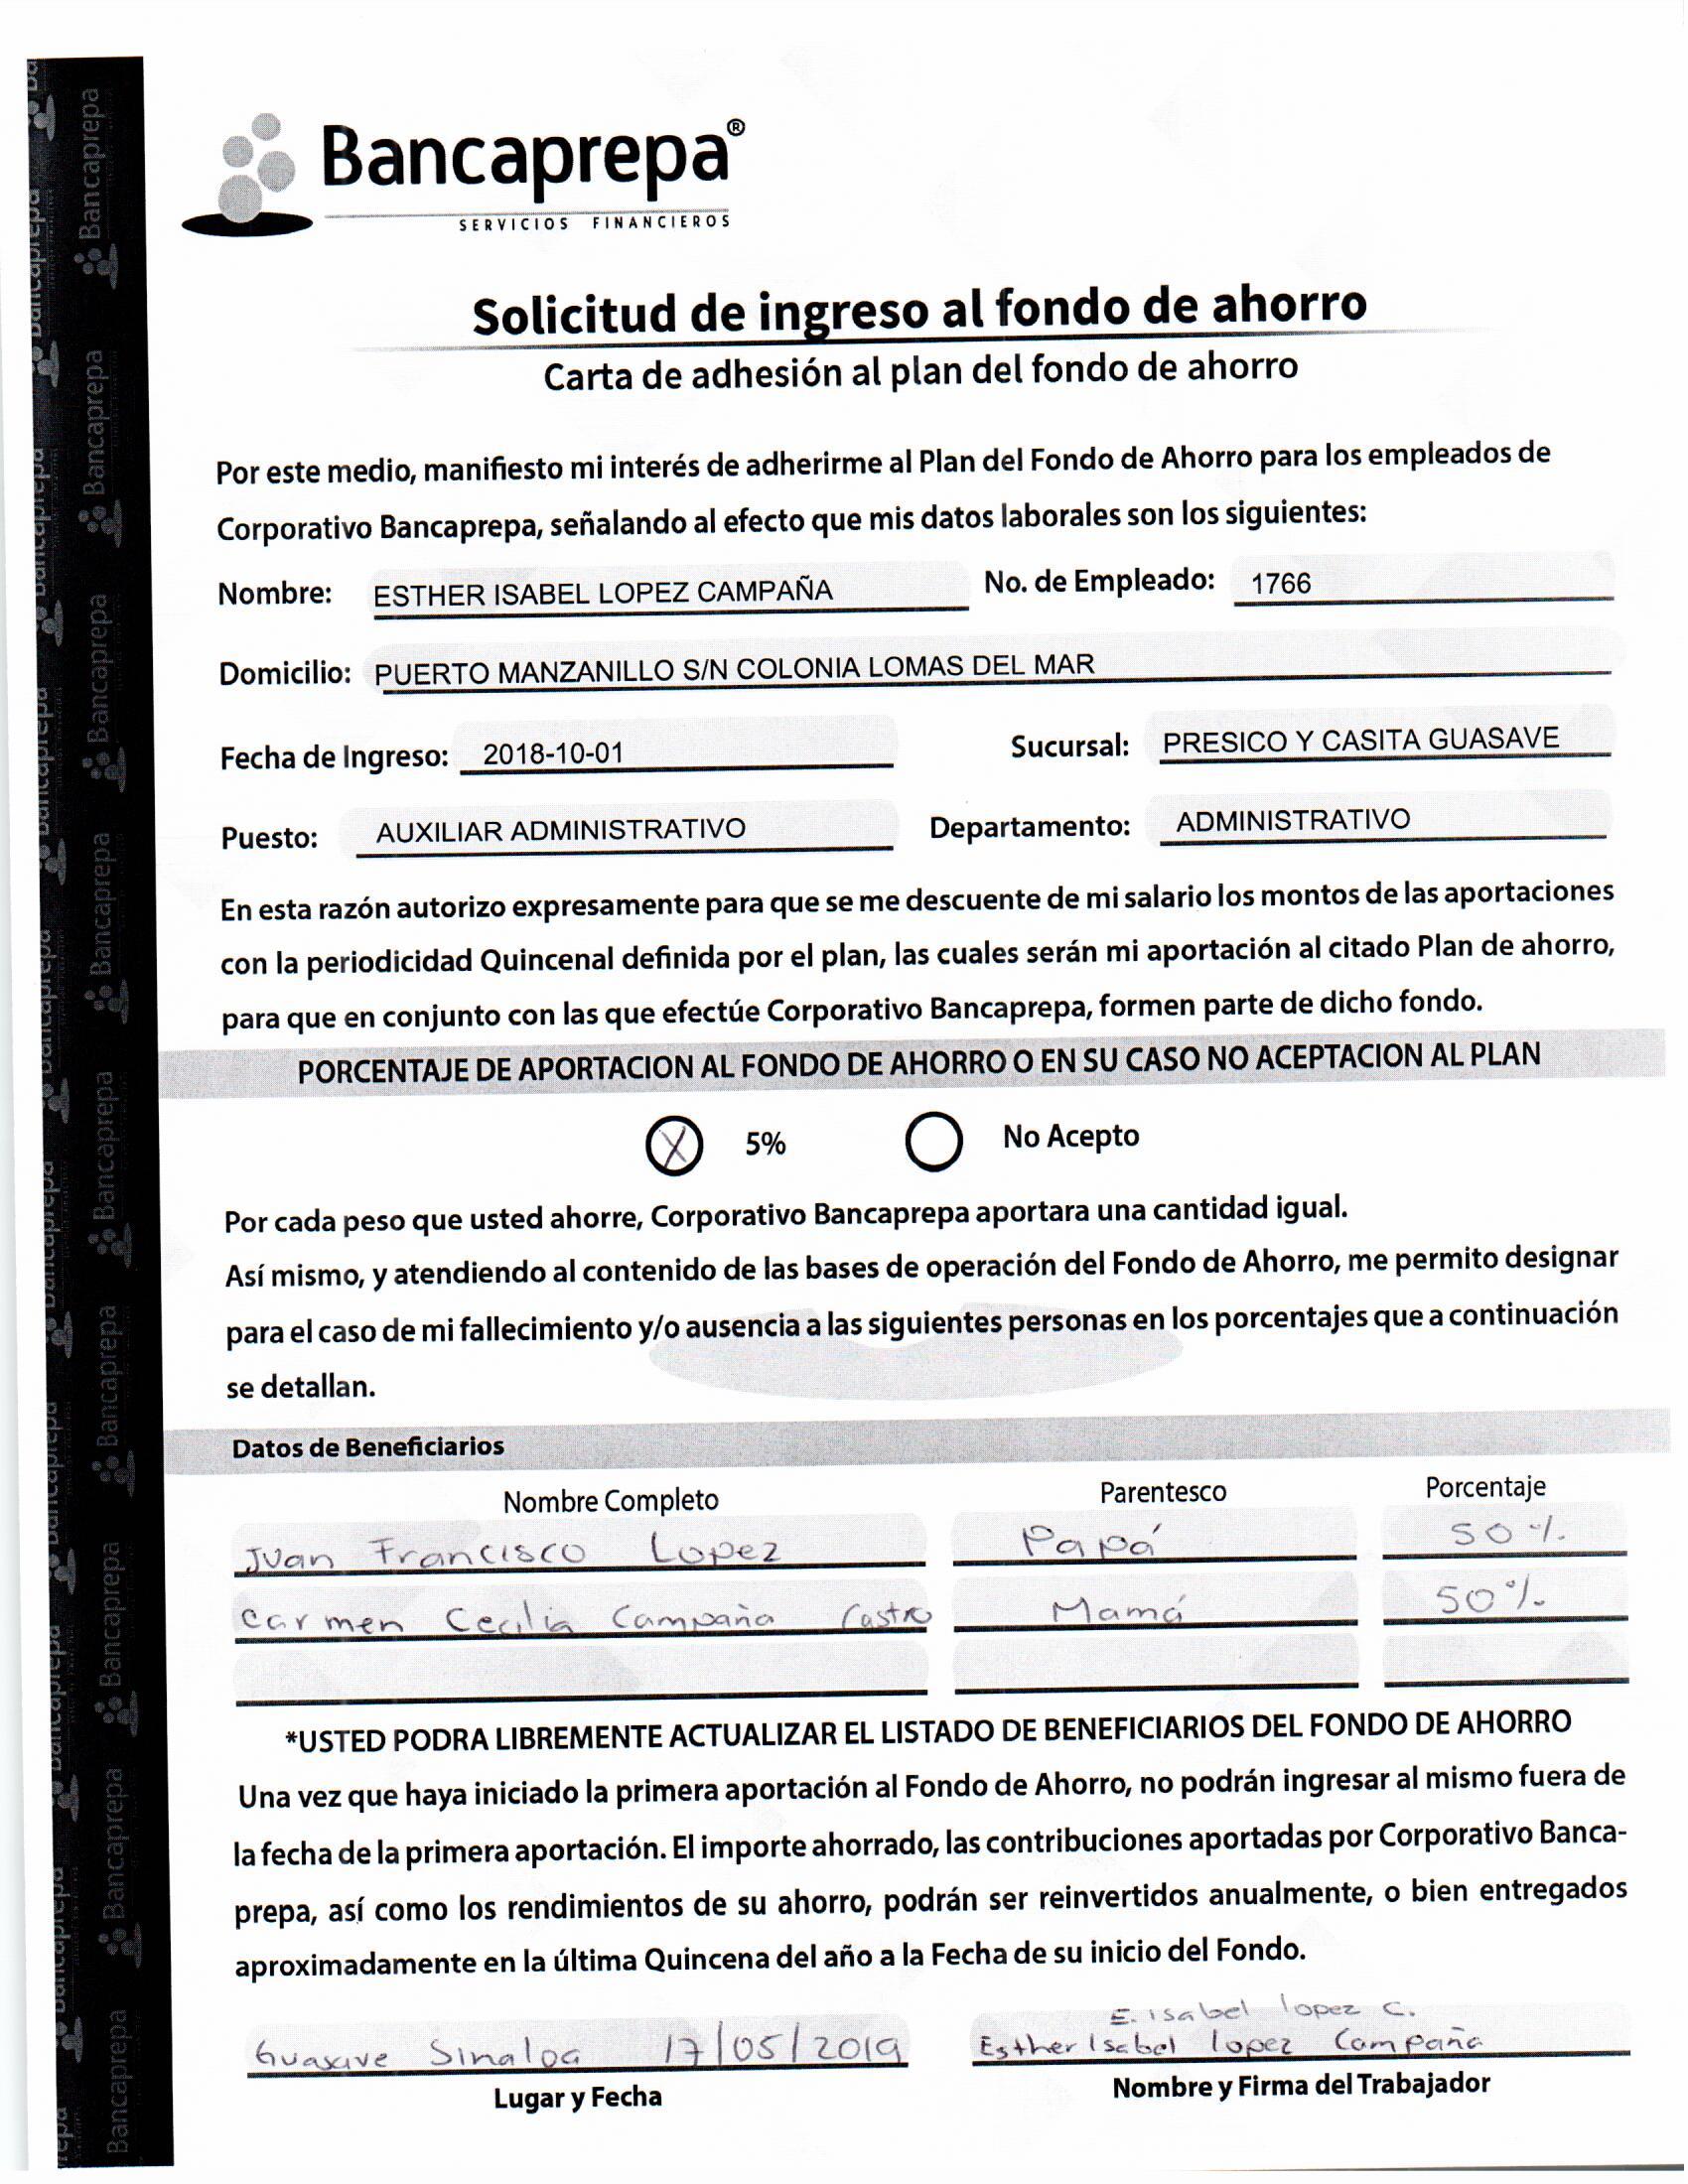 Bancaprepa®
SERVICIOS FINANCIEROS
Solicitud de ingreso al fondo de ahorro
Carta de adhesión al plan del fondo de ahorro
Por este medio, manifiesto mi interés de adherirme al Plan del Fondo de Ahorro para los empleados de
Corporativo Bancaprepa, señalando al efecto que mis datos laborales son los siguientes:
Nombre: ESTHER ISABEL LOPEZ CAMPAÑA No. de Empleado: 1766
Domicilio: PUERTO MANZANILLO S/N COLONIA LOMAS DEL MAR
Fecha de Ingreso: 2018-10-01 Sucursal: PRESICO Y CASITA GUASAVE
Puesto: AUXILIAR ADMINISTRATIVO Departamento: ADMINISTRATIVO
En esta razón autorizo expresamente para que se me descuente de mi salario los montos de las aportaciones
con la periodicidad Quincenal definida por el plan, las cuales serán mi aportación al citado Plan de ahorro,
para que en conjunto con las que efectúe Corporativo Bancaprepa, formen parte de dicho fondo.
PORCENTAJE DE APORTACION AL FONDO DE AHORRO O EN SU CASO NO ACEPTACION AL PLAN
X 5% No Acepto
Por cada peso que usted ahorre, Corporativo Bancaprepa aportara una cantidad igual.
Así mismo, y atendiendo al contenido de las bases de operación del Fondo de Ahorro, me permito designar
para el caso de mi fallecimiento y/o ausencia a las siguientes personas en los porcentajes que a continuación
se detallan.
Datos de Beneficiarios
Nombre Completo Parentesco Porcentaje
Juan Francisco Lopez Papá 50%
Carmen Cecilia Campaña Castro Mamá 50%
*USTED PODRA LIBREMENTE ACTUALIZAR EL LISTADO DE BENEFICIARIOS DEL FONDO DE AHORRO
Una vez que haya iniciado la primera aportación al Fondo de Ahorro, no podrán ingresar al mismo fuera de
la fecha de la primera aportación. El importe ahorrado, las contribuciones aportadas por Corporativo Banca-
prepa, así como los rendimientos de su ahorro, podrán ser reinvertidos anualmente, o bien entregados
aproximadamente en la última Quincena del año a la Fecha de su inicio del Fondo.
E. Isabel lopez C.
Guasave Sinaloa 17/05/2019 Esther Isabel lopez Campaña
Lugar y Fecha Nombre y Firma del Trabajador